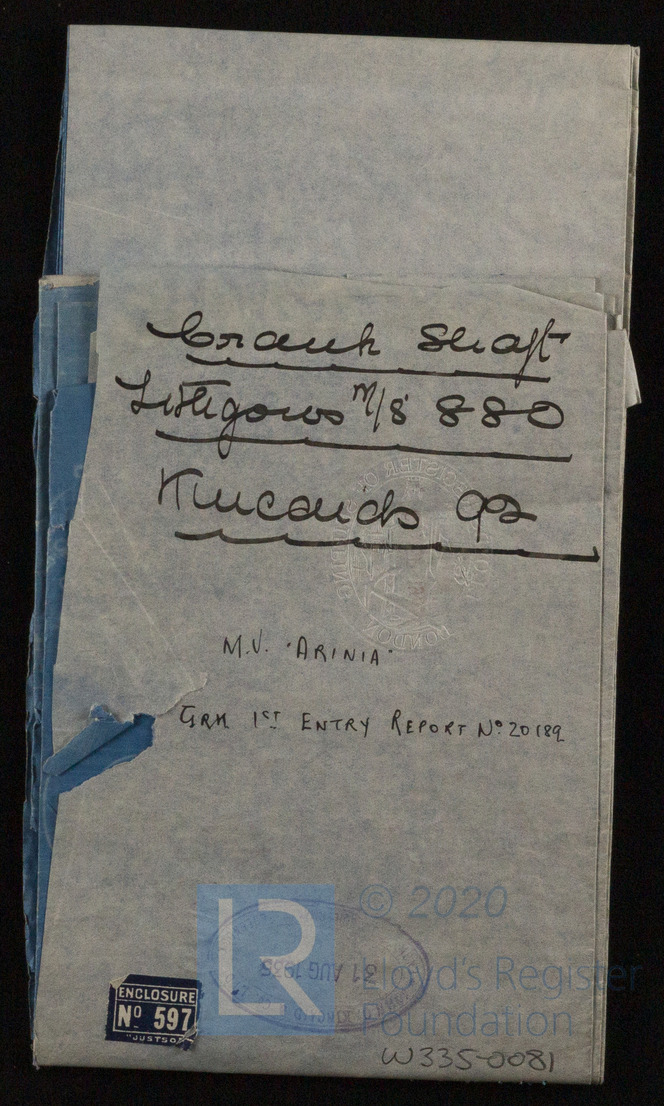 Crank Shaft
Lithgows M/S 880
Kincaids 92
M.V. "ARINIA"
GRK 1ST ENTRY REPORT No 20189
LR
© 2020
Lloyd's Register
Foundation
31 AUG 1935
ENCLOSURE
No 597
"JUSTSO"
W335-0081